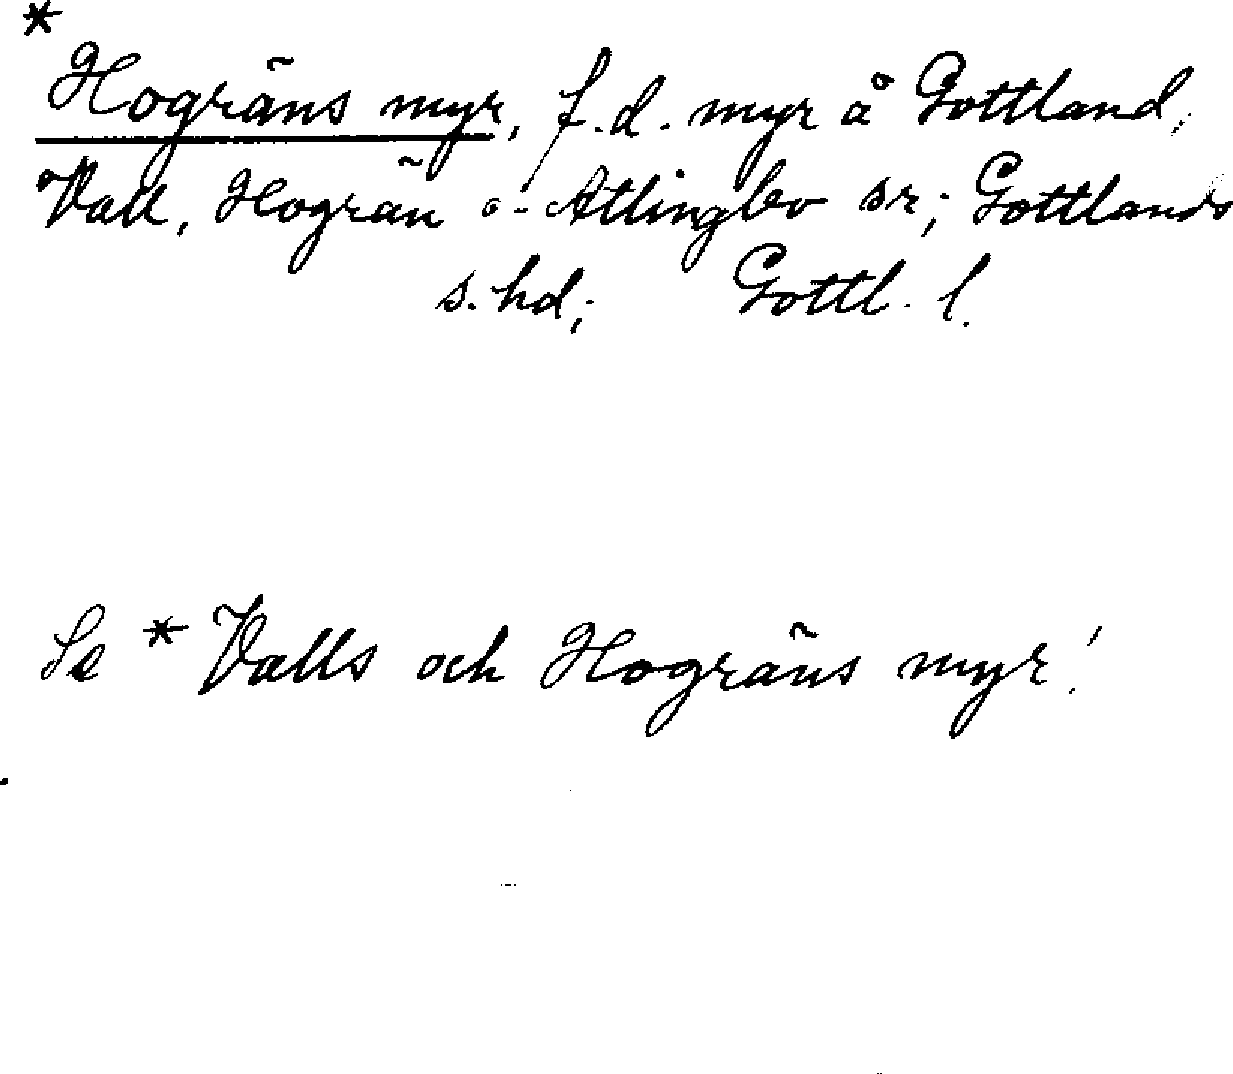 *
Hogräns myr, f.d. myr å Gottland,
Vall, Hogrän o. Atlingbo sr; Gottlands
s. hd; Gottl. l.
Se * Valls och Hogräns myr!